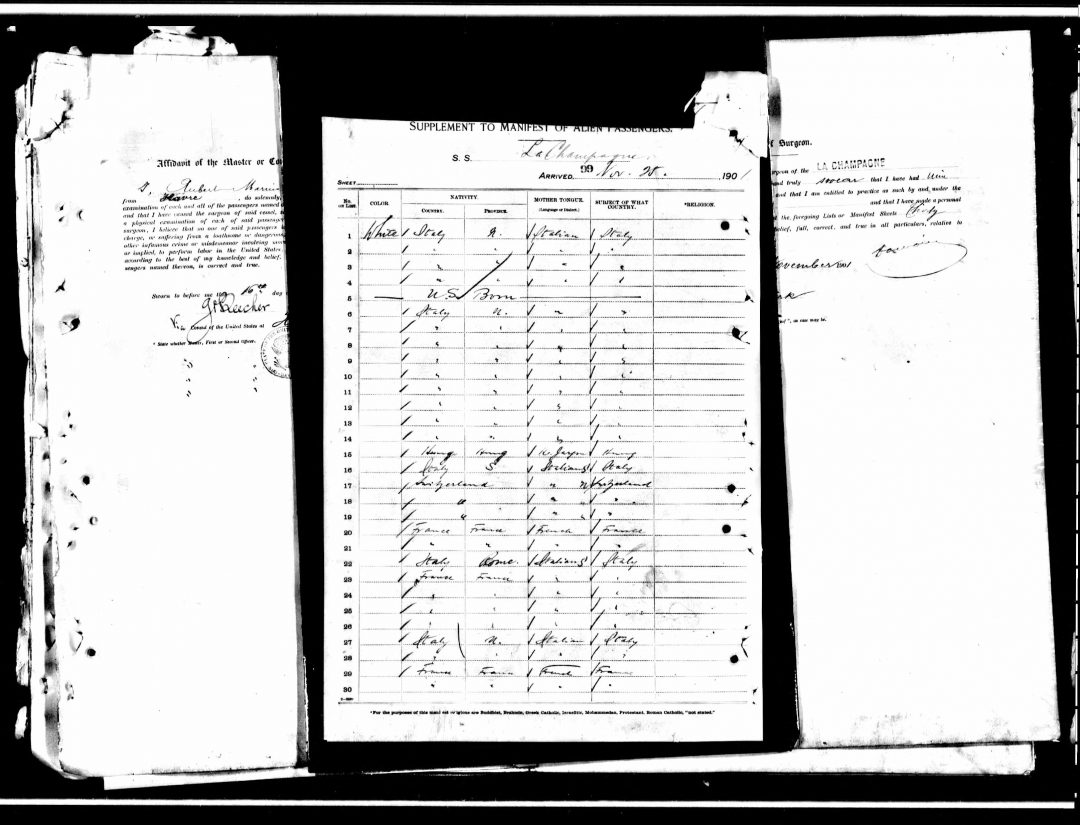 Affidavit of the Master or Co
I, Aubel Marius
from Havre, do solemnly,
examination of each and all of the passengers named
and that I have caused the surgeon of said vessel,
a physical examination of each of said passenge
surgeon, I believe that no one of said passengers
charge, or suffering from a loathsome or dangerous
other infamous crime or misdemeanor involving
or implied, to perform labor in the United States
according to the best of my knowledge and belief,
sengers named thereon, is correct and true.
Sworn to before me this 16 day
Consul of the United States at
* State whether Master, First or Second Officer.
SUPPLEMENT TO MANIFEST OF ALIEN PASSENGERS.
S. S. La Champagne.
99
SHEET ARRIVED, Nov. 28. 1901
No. on List. COLOR NATIVITY. COUNTRY. PROVINCE. MOTHER TONGUE. (Language or Dialect.) SUBJECT OF WHAT COUNTRY. *RELIGION.
1 White Italy N. Italian Italy
2 " " " "
3 " " "
4 " " "
5 — U.S. Born —
6 Italy N. " "
7 " " " "
8 " " " "
9 " " " "
10 " " " "
11 " " " "
12 " " " "
13 " " " "
14 " " " "
15 Hung Hung Hung
16 Italy S Italian S Italy
17 Switzerland " N Switzerland
18 " " " "
19 " " " "
20 France France French France
21 " " " "
22 Italy Rome Italian S Italy
23 France France " "
24 " " " "
25 " " " "
26 " " " "
27 Italy N. Italian Italy
28 " " " "
29 France France French France
30 " " " "
*For the purposes of this manifest religions are Buddhist, Brahmin, Greek Catholic, Israelite, Mohammedan, Protestant, Roman Catholic, "not stated."
f Surgeon.
rgeon of the LA CHAMPAGNE
and truly swear that I have had nine
and that I am entitled to practice as such by and under the
and that I have made a personal
the foregoing Lists or Manifest Sheets
elief, full, correct, and true in all particulars, relative to
November 1901